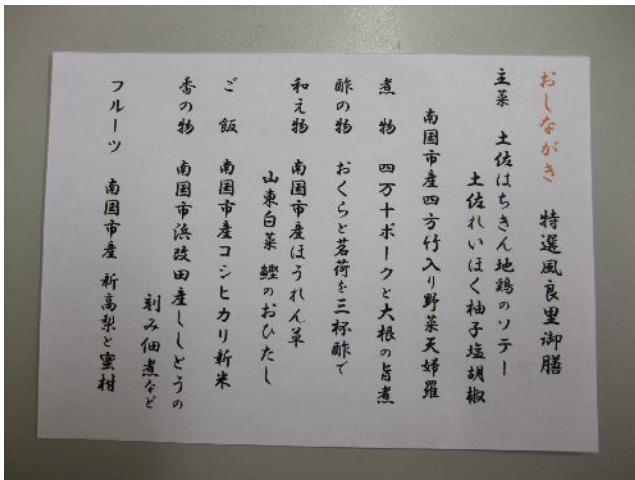 おしながき 特選風良里御膳
主菜 土佐はちきん地鶏のソテー
土佐れいほく柚子塩胡椒
南国市産四方竹入り野菜天婦羅
煮物 四万十ポークと大根の旨煮
酢の物 おくらと茗荷を三杯酢で
和え物 南国市産ほうれん草
山東白菜 鰹のおひたし
ご飯 南国市産コシヒカリ新米
香の物 南国市浜改田産ししとうの
刻み佃煮など
フルーツ 南国市産 新高梨と蜜柑